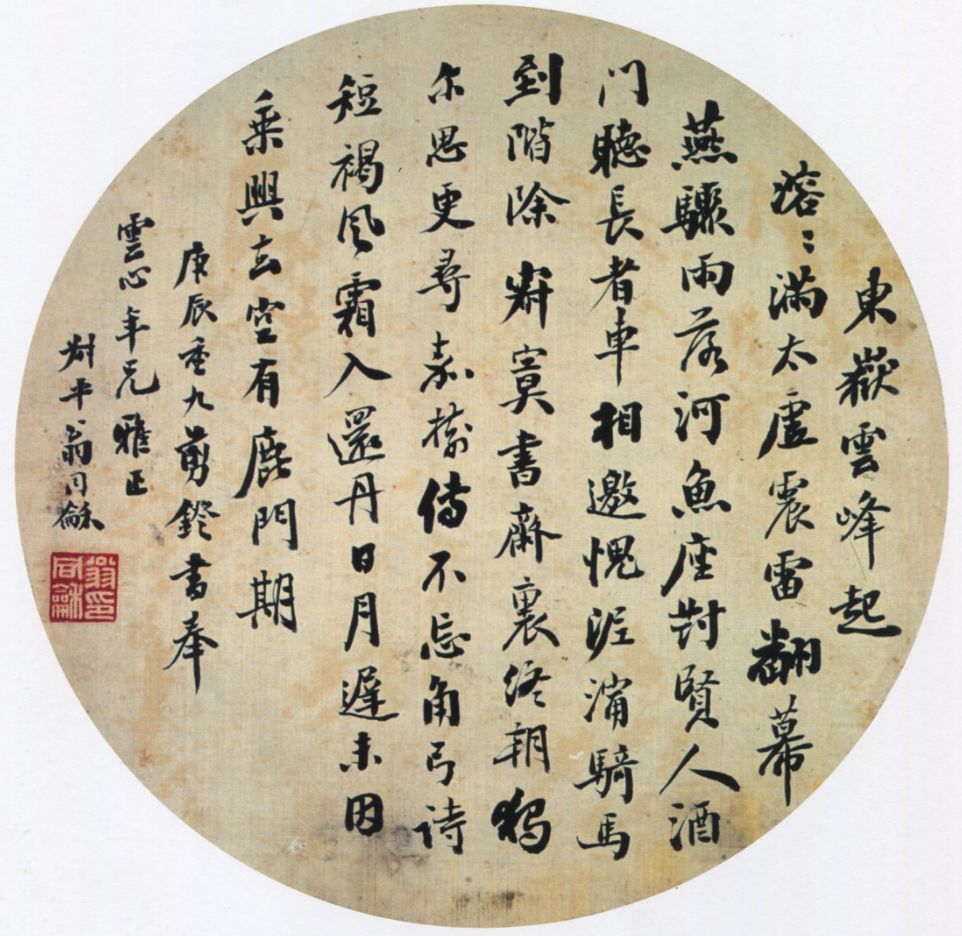 東嶽雲峰起
溶〻滿太虛震雷翻幕
燕驟雨落河魚座對賢人酒
门聽長者車相邀愧泥濘騎馬
到階除寂寞書齋裏終朝獨
尔思更尋嘉樹傳不忘角弓诗
短褐風霜入還丹日月遲未因
乘興去空有鹿門期
庚辰重九剪鐙書奉
雲心年兄雅正
叔平翁同龢
翁同龢印